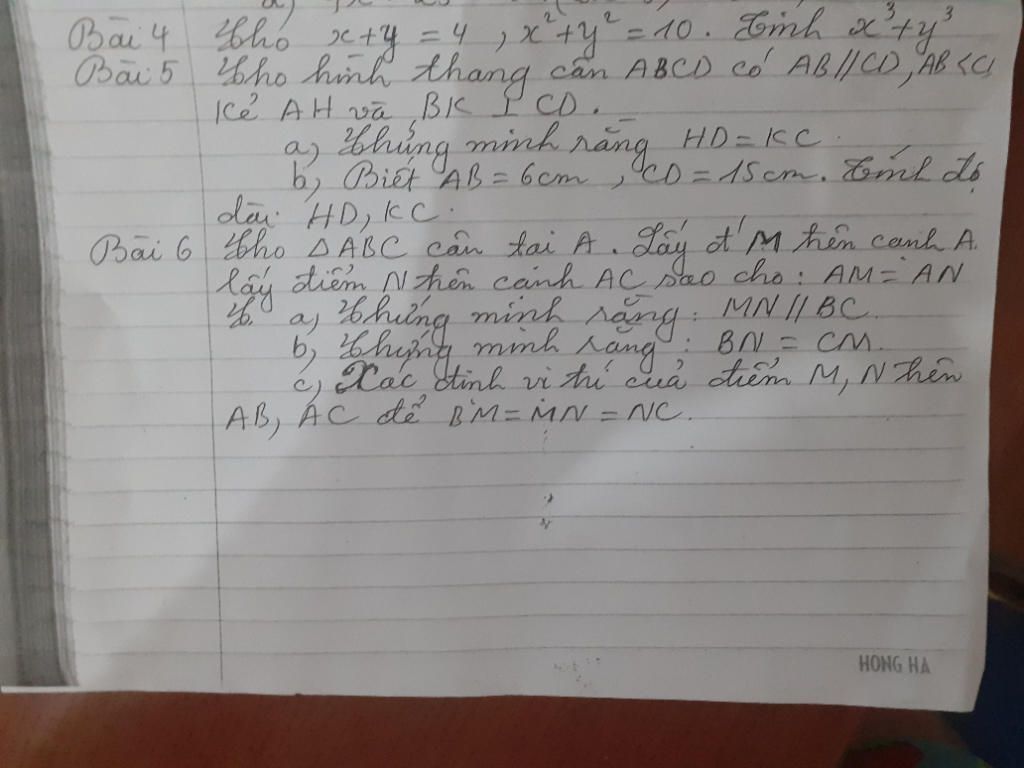 Bài 4 Cho x+y = 4 , x² + y² = 10. Tính x³ + y³
Bài 5 Cho hình thang cân ABCD có AB // CD, AB < C
Kẻ AH và BK ⊥ CD.
a) Chứng minh rằng HD = KC.
b) Biết AB = 6cm , CD = 15cm. Tính độ
dài HD, KC.
Bài 6 Cho △ABC cân tại A. Lấy đ' M trên cạnh A
lấy điểm N trên cạnh AC sao cho : AM = AN
a) Chứng minh rằng : MN // BC.
b) Chứng minh rằng : BN = CM.
c) Xác định vị trí của điểm M, N trên
AB, AC để BM = MN = NC.
HONG HA